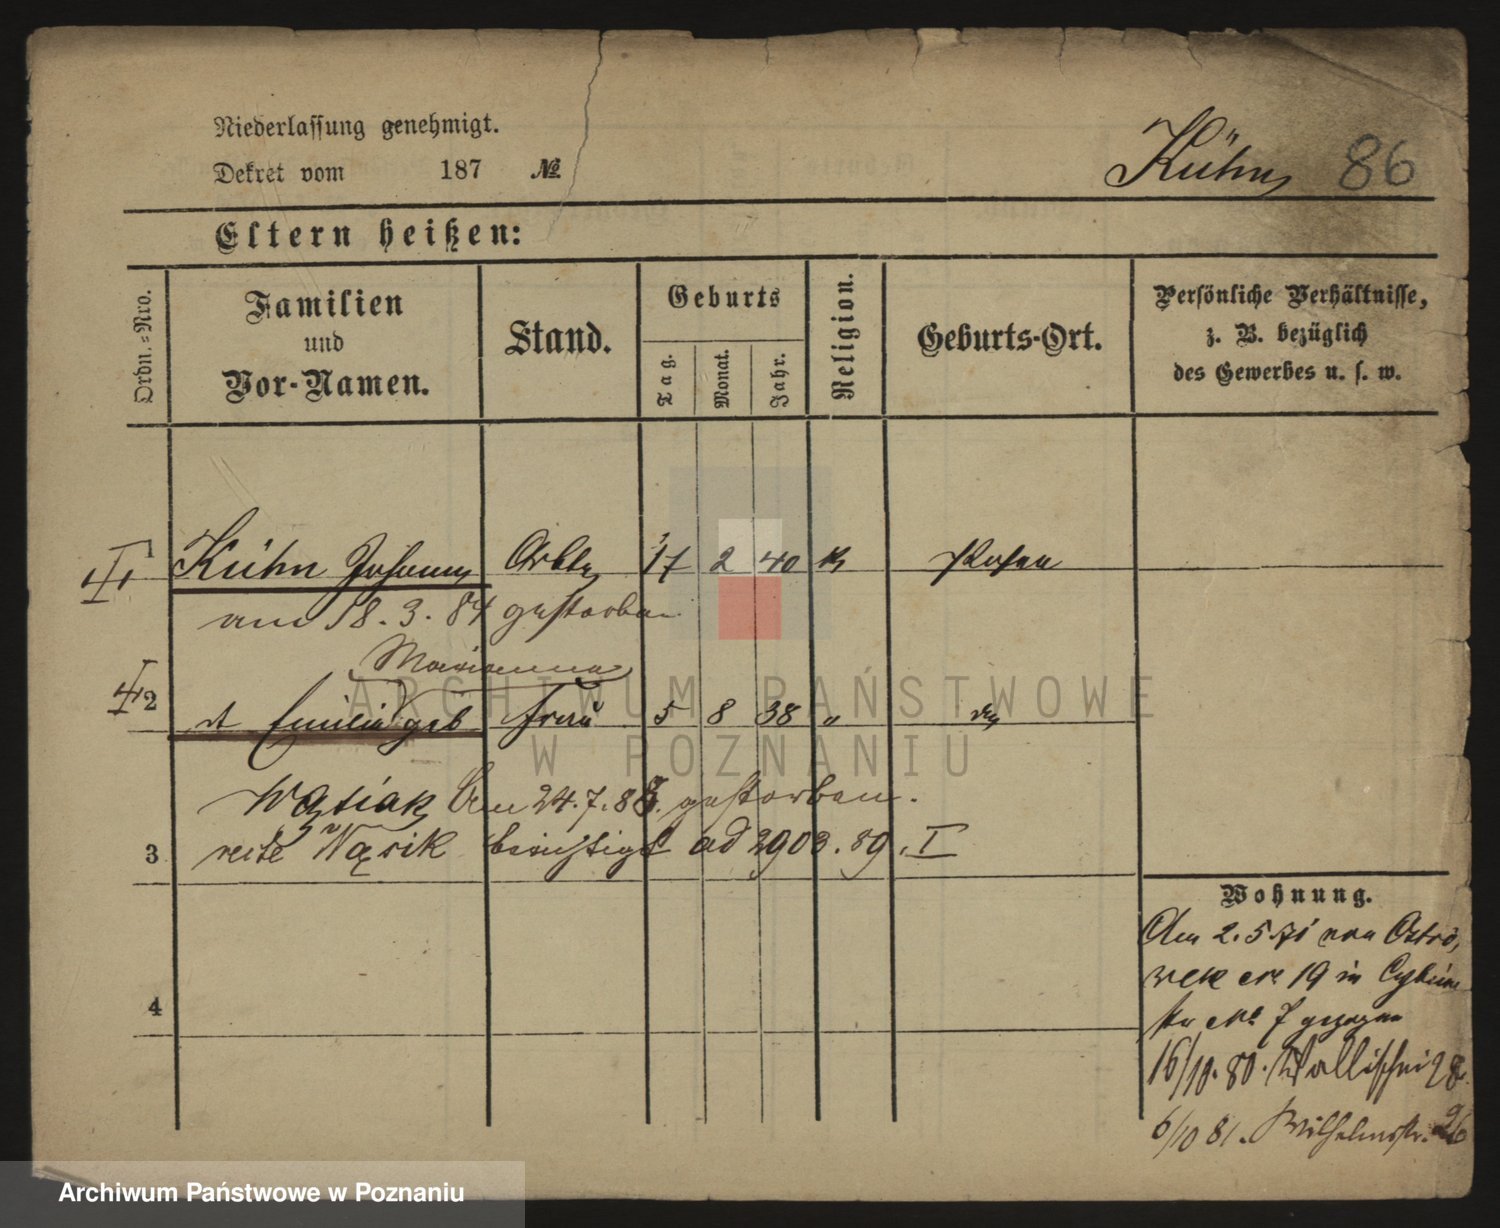 Niederlassung genehmigt.
Dekret vom 187 №
Kühn 86
Eltern heißen:
Ordn.=Nro.
Familien
und
Vor-Namen.
Stand.
Geburts
Tag.
Monat.
Jahr.
Religion.
Geburts-Ort.
Persönliche Verhältnisse,
z. B. bezüglich
des Gewerbes u. s. w.
1 Kühn Johann Arbtr 17 2 40 k Posen
am 18. 3. 84 gestorben
Marianna
2 Emilia geb Frau 5 8 38 "
Wąsiak Am 24. 7. 88. gestorben.
3 recte Wąsik berichtigt ad 2903. 89. I
4
Wohnung.
Am 2. 5 71 von Ostró,
wek № 19 in Cybina
str № 7 gezogen
16/10. 80. Wallischei 28.
6/10 81. Wilhelmstr. 26
ARCHIWUM PAŃSTWOWE
W POZNANIU
Archiwum Państwowe w Poznaniu